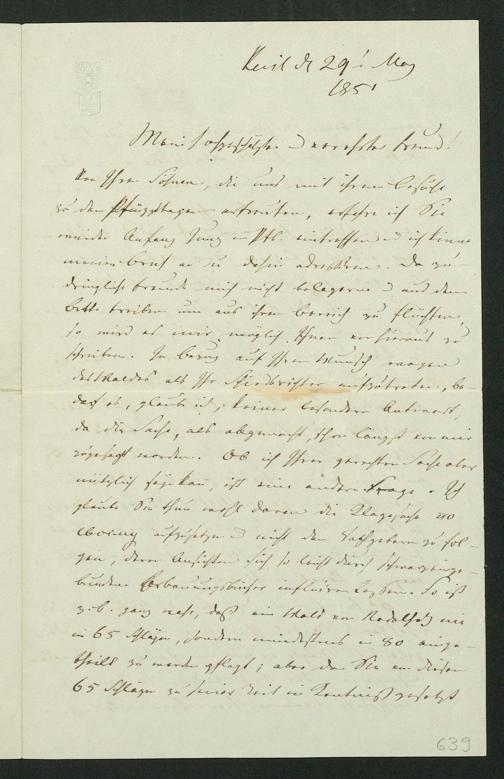 d 29t May
1851
Mein hochgeschätzter u verehrter Freund!
Von Ihren Söhnen, die uns mit ihrem Besuch
zu den Pfingsttagen erfreuten, erfahre ich Sie
würden Anfang Juny in Ptb. eintreffen u ich könne
meinen Brief an Sie dahin adressiren. Da zu-
dringliche Freunde mich nicht belagern u aus dem
Bette treiben um aus ihrem Bereich zu flüchten,
so wird es mir möglich Ihnen von hieraus zu
schreiben. In bezug auf Ihren Wunsch wegen
des Waldes als Ihr Schiedsrichter aufzutreten, be-
darf es, glaube ich, keiner besondern Antwort,
da die Sache, als abgemacht, schon längst von mir
zugesagt worden. Ob ich Ihrer gerechten Sache aber
nützlich sein kann, ist eine andere Frage. Ich
glaube Sie thun wohl daran die Klagesache
aufzusetzen u nicht den Rathgebern zu fol-
gen, deren Ansichten sich so leicht durch
bundene Erbauungsbücher influiren lassen. So ist
z.b. ganz wahr, daß ein Wald von nie
in 65 Schläge, sondern mindestens in 80 einge-
theilt zu werden pflegt; aber da Sie von diesen
65 Schlägen zu seiner Zeit in Kentniß gesetzt
639